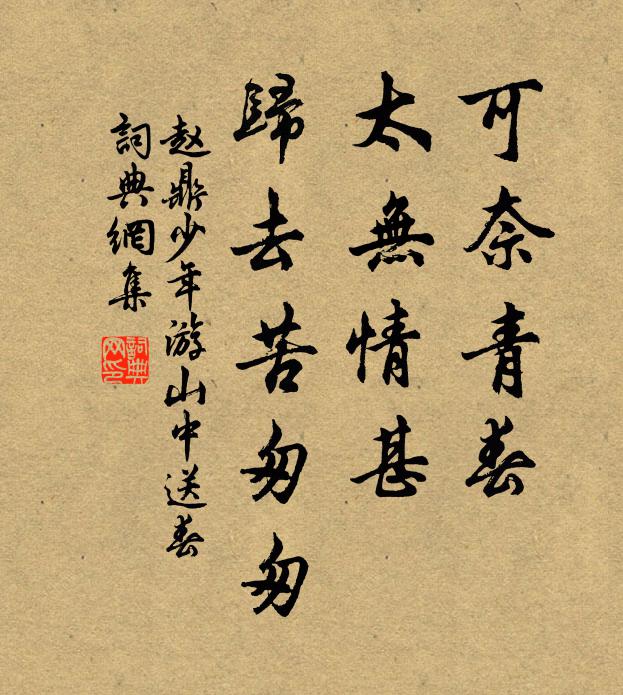 可奈青春
太無情甚
歸去苦匆匆
赵鼎少年游山中送春
詞典網集
詞典网印